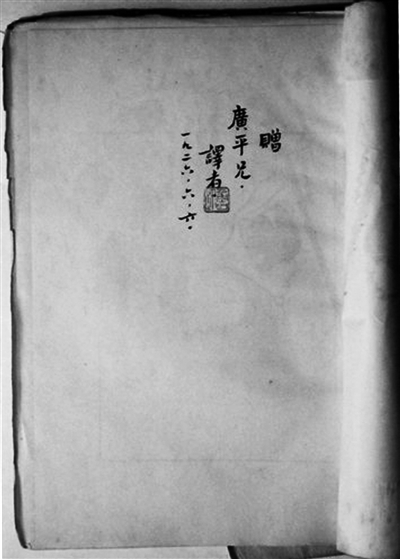 贈
廣平兄.
譯者.
一九二六.六.六.